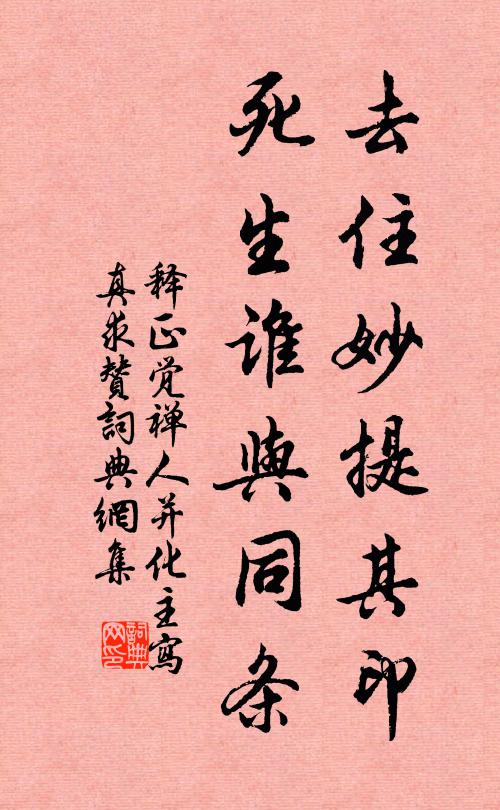 去住妙提其印
死生谁與同条
释正觉禅人并化主寫
真求赞詞典網集
詞典网印